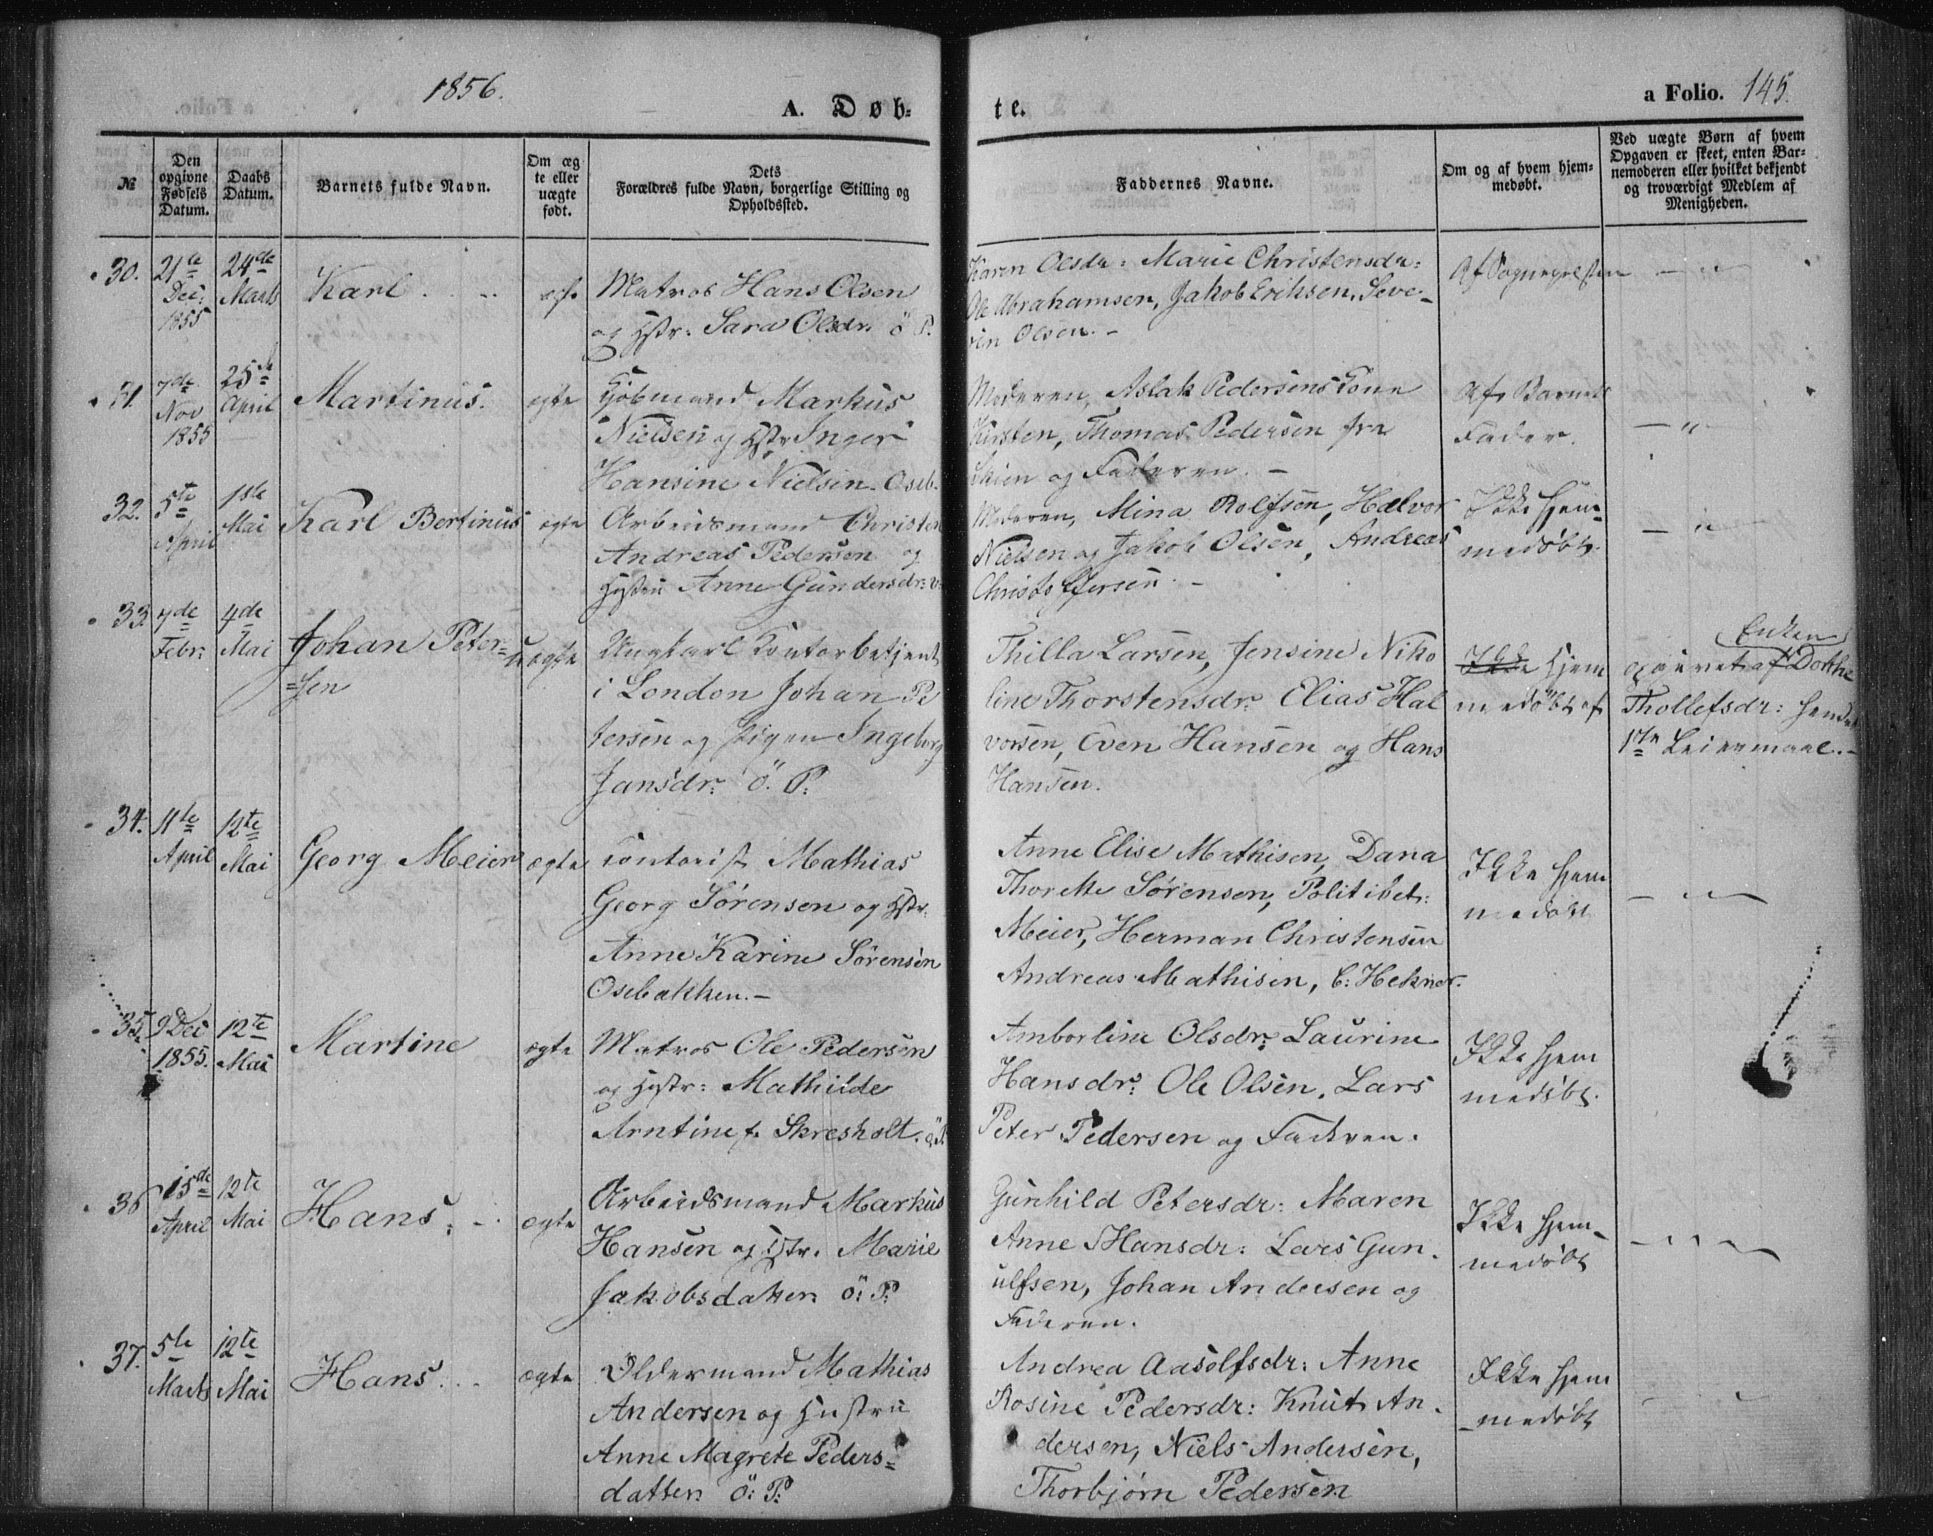 1856.
A. Døb-
te.
a Folio. 145.
№
Den opgivne Fødsels Datum.
Daabs Datum.
Barnets fulde Navn.
Om ægte eller uægte født.
Dets Forældres fulde Navn, borgerlige Stilling og Opholdssted.
Faddernes Navne.
Om og af hvem hjemmedøbt.
Ved uægte Børn af hvem Opgaven er skeet, enten Barnemoderen eller hvilket bekjendt og troværdigt Medlem af Menigheden.
30.
21de
Dec:
1855
24de
Marts
Karl
Matros Hans Olsen
og Hstr: Sara Olsdr: ö P.
Karen Olsdr: Marie Christensdr:
Ole Abrahamsen, Jakob Erichsen, Seve-
rin Olsen. -
Af Sognepresten
31.
7de
Nov
1855
25de
April
Martinus.
ægte
Kjöbmand Markus
Nielsen og Hstr Inger
Hansine Nielsen. Oseb.
Moderen, Aslak Pedersens Kone
Kirsten, Thomas Pedersen fra
Skien og Faderen. -
Af Barnets
Fader.
32.
5te
April
1ste
Mai
Karl Bertinus
ægte
Arbeidsmand Christen
Andreas Pedersen og
Hustru Anne Gundersdr: v.
Moderen, Mina Rolfsen, Halvor
Nielsen og Jakob Olsen, Andreas
Christoffersen. -
Ikke hjem-
medøbt.
33.
7de
Febr:
4de
Mai
Johan Peter-
=sen
uægte
Ungkarl Kontorbetjent
i London Johan Pe
tersen og Pigen Ingeborg
Jansdr: Ö. P.
Thilla Larsen, Jensine Niko
line Thorstensdr: Elias Hal
vorsen, Even Hansen og Hans
Hansen.
Ikke Hjem
medøbt af
Enken
opgivet af Dorthe
Thollefsdr: hendes
1ste Leiermaal. -
34.
11te
April
12te
Mai
Georg Meier
ægte
Contorist Mathias
Georg Sørensen og Hstr:
Anne Karine Sørensen
Osebakken. -
Anne Elise Mathisen, Dana
Thorette Sørensen, Politibet:
Meier, Herman Christensen
Andreas Mathisen, C: Hekner.
Ikke hjem
medøbt
35.
9 Dec
1855.
12te
Mai
Martine
ægte
Matros Ole Pedersen
og Hustr: Mathilde
Arntine f. Skresholt. ö P.
Amborline Olsdr: Laurine
Hansdr: Ole Olsen, Lars
Peter Pedersen og Faderen.
Ikke hjem
medøbt.
36
15de
April
12te
Mai
Hans.
ægte
Arbeidsmand Markus
Hansen og Hstr. Marie
Jakobsdatter ö: P.
Gunhild Petersdr: Maren
Anne Hansdr: Lars Gun.
ulfsen, Johan Andersen og
Faderen.
Ikke hjem-
medøbt
37.
5te
Marts
12te
Mai
Hans
ægte
Oldermand Mathias
Andersen og Hustru
Anne Magrete Peders-
datter Ö: P.
Andrea Aasolfsdr: Anne
Rosine Pedersdr: Knut An.
dersen, Niels Andersen,
Thorbjørn Pedersen
Ikke hjem
medøbt